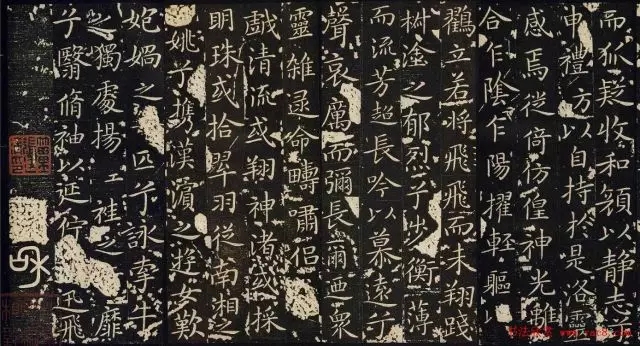 而狐疑收和顏以靜志
申禮方以自持於是洛靈
感焉徙倚彷徨神光離
合乍陰乍陽擢輕軀以
鸛立若將飛飛而未翔踐
椒塗之郁烈兮步衡薄
而流芳超長吟以慕遠兮
聲哀厲而彌長爾迺眾
靈雜遝命疇嘯侶
戲清流或翔神渚或採
明珠或拾翠羽從南湘之
姚兮攜漢濱之遊女歎
妃媧之匹兮詠牽牛
之獨處揚袿之靡
兮翳脩袖以延佇迅飛